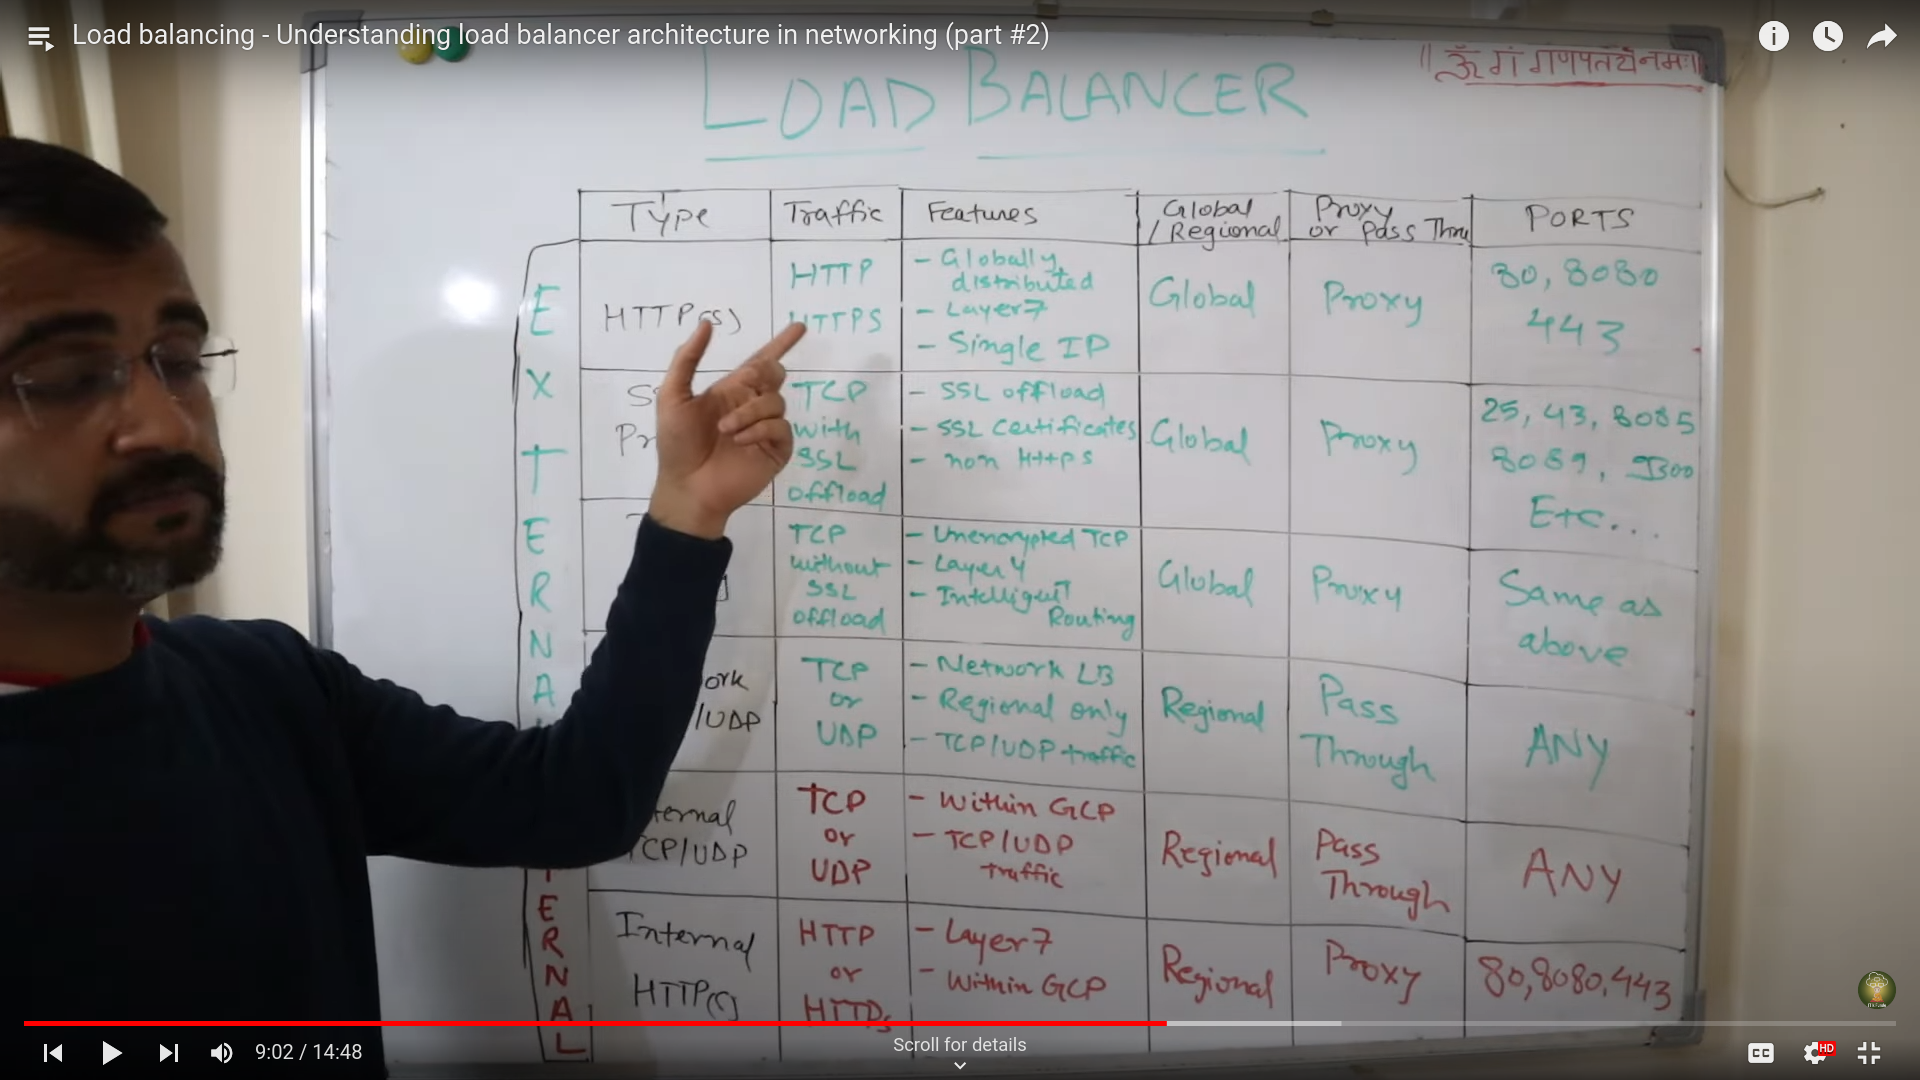 Load balancing - Understanding load balancer architecture in networking (part #2)
॥ ॐ गं गणपतये नमः॥
LOAD BALANCER
Type
Traffic
Features
Global
/ Regional
Proxy
or Pass Thru
PORTS
EXTERNAL
HTTP(S)
HTTP
HTTPS
- Globally
distributed
- Layer7
- Single IP
Global
Proxy
80, 8080
443
TCP
with
SSL
offload
- SSL offload
- SSL Certificates
- non HttpS
Global
Proxy
25, 43, 8085
8089,
Etc...
TCP
without
SSL
offload
- Unencrypted TCP
- Layer 4
- Intelligent
Routing
Global
Proxy
Same as
above
ork
/UDP
TCP
or
UDP
- Network LB
- Regional only
- TCP/UDP traffic
Regional
Pass
Through
ANY
TERNAL
ternal
TCP/UDP
TCP
or
UDP
- Within GCP
- TCP/UDP
traffic
Regional
Pass
Through
ANY
Internal
HTTP(S)
HTTP
or
HTTPs
- Layer7
- Within GCP
Regional
Proxy
80,8080,443
9:02 / 14:48
Scroll for details
CC
HD